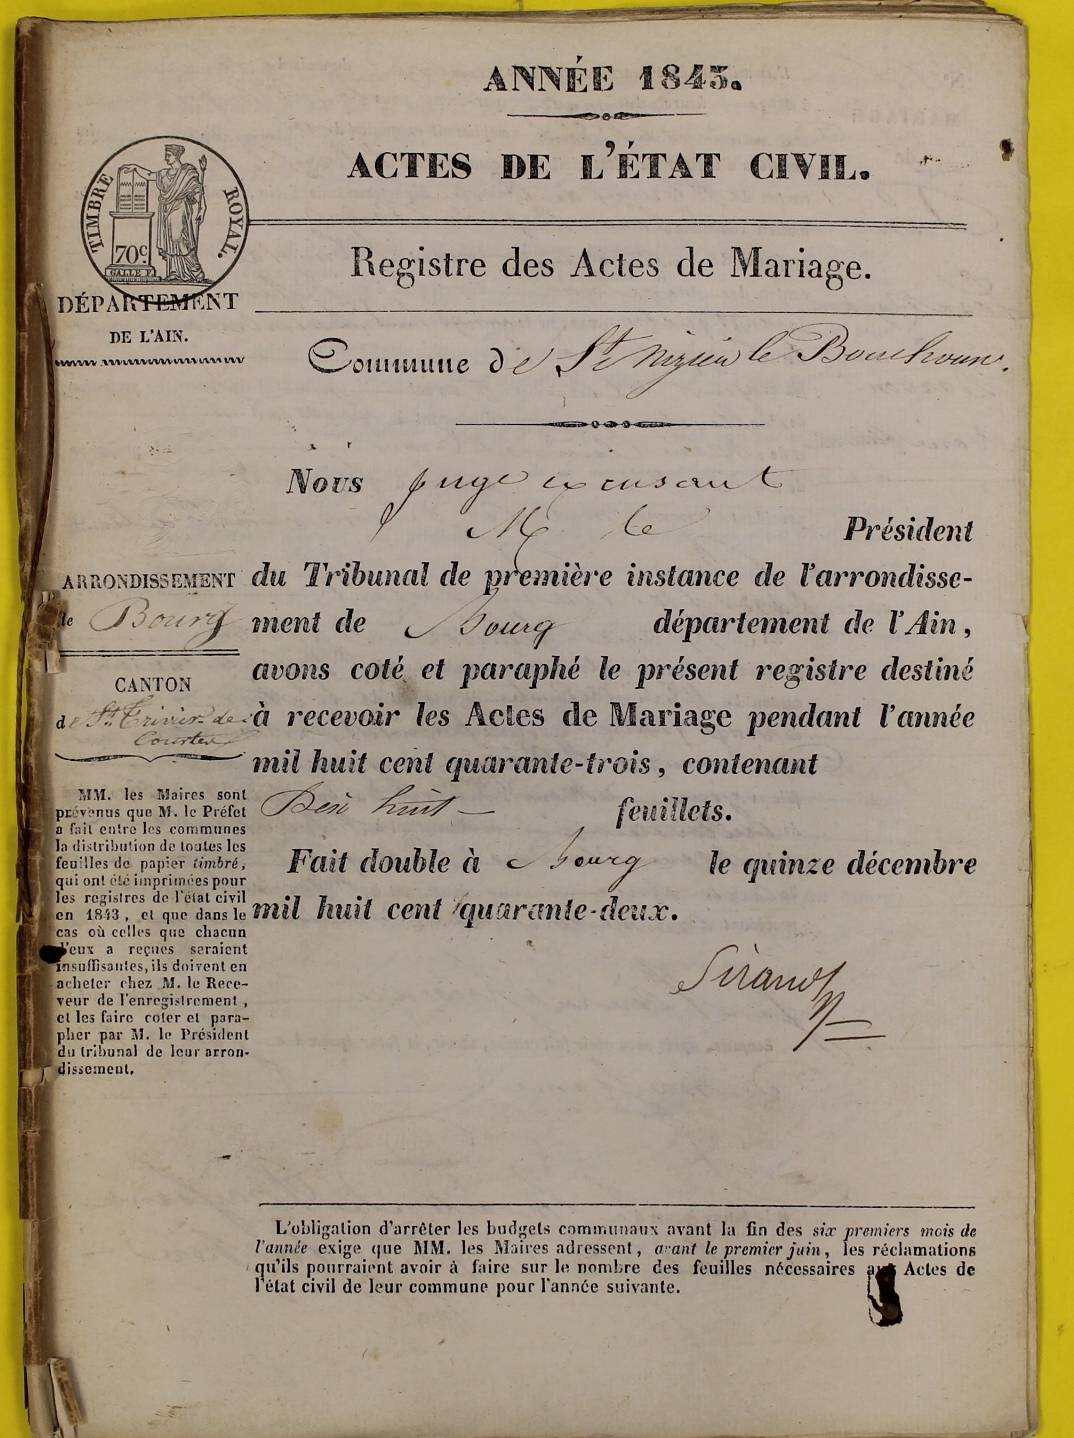 ANNÉE 1843.
ACTES DE L'ÉTAT CIVIL.
TIMBRE ROYAL.
70c
GALLE F.
DÉPARTEMENT
DE L'AIN.
Registre des Actes de Mariage.
Commune de St Nizier le Bouchoux.
Nous juge excusant
M le Président
du Tribunal de première instance de l'arrondisse-
ment de Bourg département de l'Ain,
avons coté et paraphé le présent registre destiné
à recevoir les Actes de Mariage pendant l'année
mil huit cent quarante-trois, contenant
Dix huit feuillets.
Fait double à Bourg le quinze décembre
mil huit cent quarante-deux.
Sirand
ARRONDISSEMENT
de Bourg
CANTON
de St. Trivier de
Courtes
MM. les Maires sont
prévenus que M. le Préfet
a fait entre les communes
la distribution de toutes les
feuilles de papier timbré,
qui ont été imprimées pour
les registres de l'état civil
en 1843, et que dans le
cas où celles que chacun
d'eux a reçues seraient
insuffisantes, ils doivent en
acheter chez M. le Rece-
veur de l'enregistrement,
et les faire coter et para-
pher par M. le Président
du tribunal de leur arron-
dissement.
L'obligation d'arrêter les budgets communaux avant la fin des six premiers mois de
l'année exige que MM. les Maires adressent, avant le premier juin, les réclamations
qu'ils pourraient avoir à faire sur le nombre des feuilles nécessaires aux Actes de
l'état civil de leur commune pour l'année suivante.